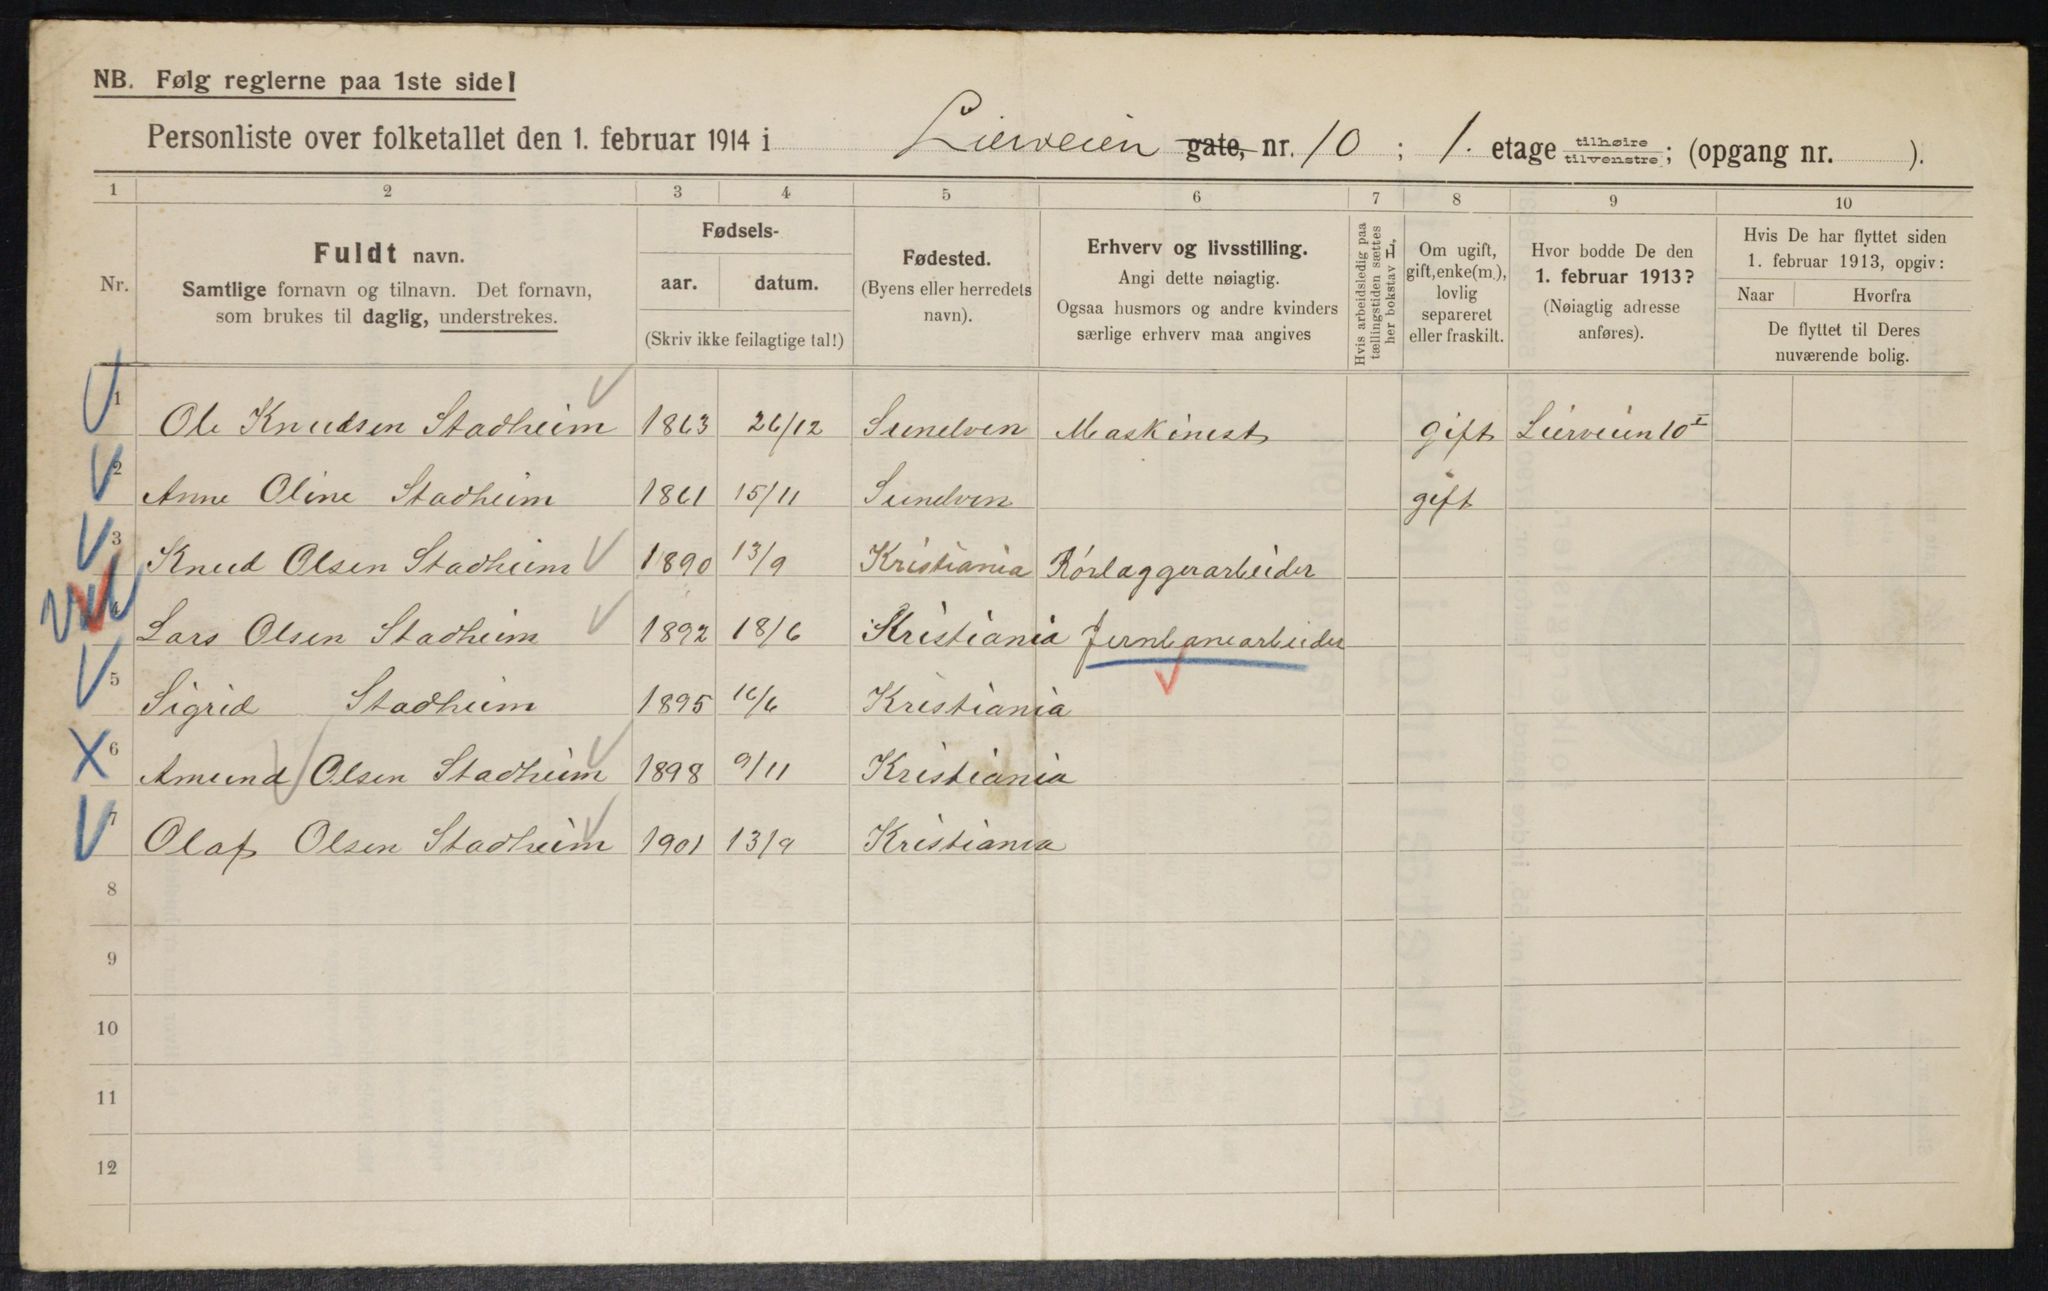 NB. Følg reglerne paa 1ste side!
Personliste over folketallet den 1. februar 1914 i Lierveien gate, nr. 10 ; 1. etage tilhøire tilvenstre ; (opgang nr. ).
1 2 3 4 5 6 7 8 9 10
Nr.
Fuldt navn.
Samtlige fornavn og tilnavn. Det fornavn,
som brukes til daglig, understrekes.
Fødsels-
aar. datum.
(Skriv ikke feilagtige tal!)
Fødested.
(Byens eller herredets
navn).
Erhverv og livsstilling.
Angi dette nøiagtig.
Ogsaa husmors og andre kvinders
særlige erhverv maa angives
Hvis arbeidsledig paa
tællingstiden sættes
her bokstav L.
Om ugift,
gift, enke(m.),
lovlig
separeret
eller fraskilt.
Hvor bodde De den
1. februar 1913?
(Nøiagtig adresse
anføres).
Hvis De har flyttet siden
1. februar 1913, opgiv:
Naar Hvorfra
De flyttet til Deres
nuværende bolig.
1 Ole Knudsen Stadheim 1863 26/12 Sunelven Maskinist gift Lierveien 10 I
2 Anne Oline Stadheim 1861 15/11 Sunelven gift
3 Knud Olsen Stadheim 1890 13/9 Kristiania Rörlæggerarbeider
4 Lars Olsen Stadheim 1892 18/6 Kristiania Jernbanearbeider
5 Sigrid Stadheim 1895 16/6 Kristiania
6 Amund Olsen Stadheim 1898 9/11 Kristiania
7 Olaf Olsen Stadheim 1901 13/9 Kristiania
8
9
10
11
12